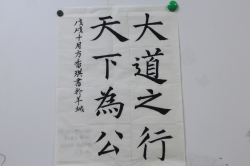 大道之行
天下為公
戊戌十月方香琪書於羊城